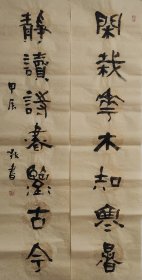 閑栽花木知寒暑
靜讀詩書鑒古今
甲辰